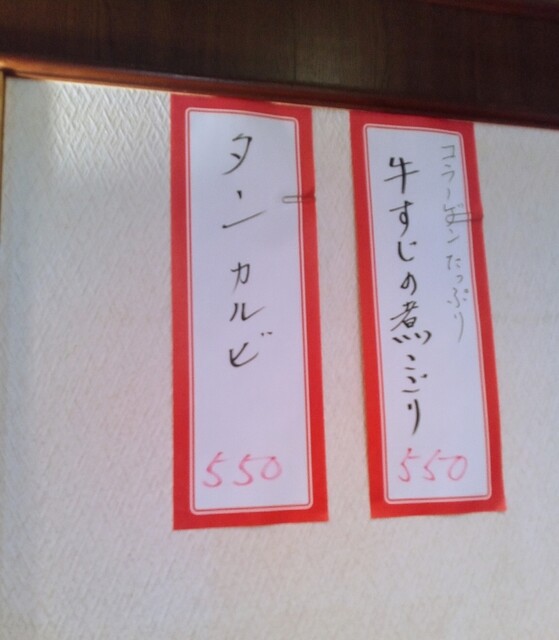 コラーゲンたっぷり
牛すじの煮こごり
550
タンカルビ
550